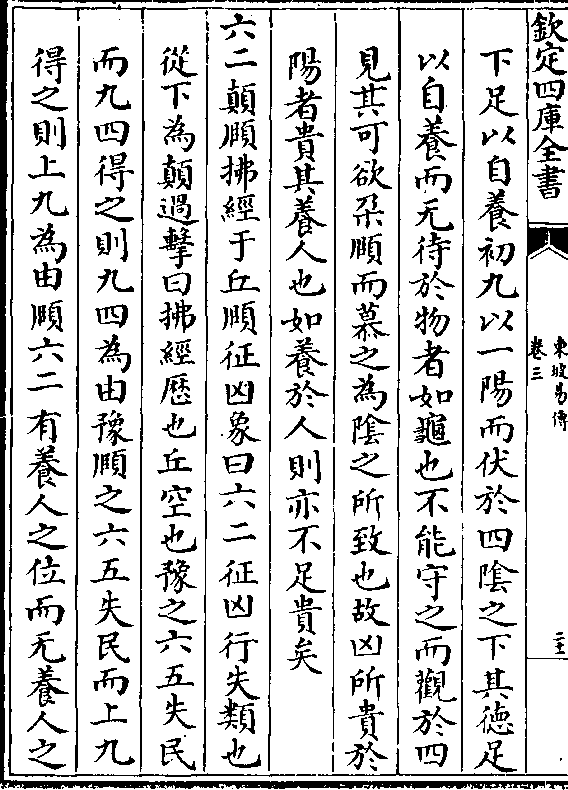 欽定四庫全書
東坡易傳
卷三
二十一
下足以自養初九以一陽而伏於四隂之下其徳足
以自養而无待於物者如龜也不能守之而觀於四
見其可欲朶頤而慕之為隂之所致也故凶所貴於
陽者貴其養人也如養於人則亦不足貴矣
六二顛頤拂經于丘頤征凶象曰六二征凶行失類也
從下為顛過擊曰拂經歴也丘空也豫之六五失民
而九四得之則九四為由豫頤之六五失民而上九
得之則上九為由頤六二有養人之位而无養人之